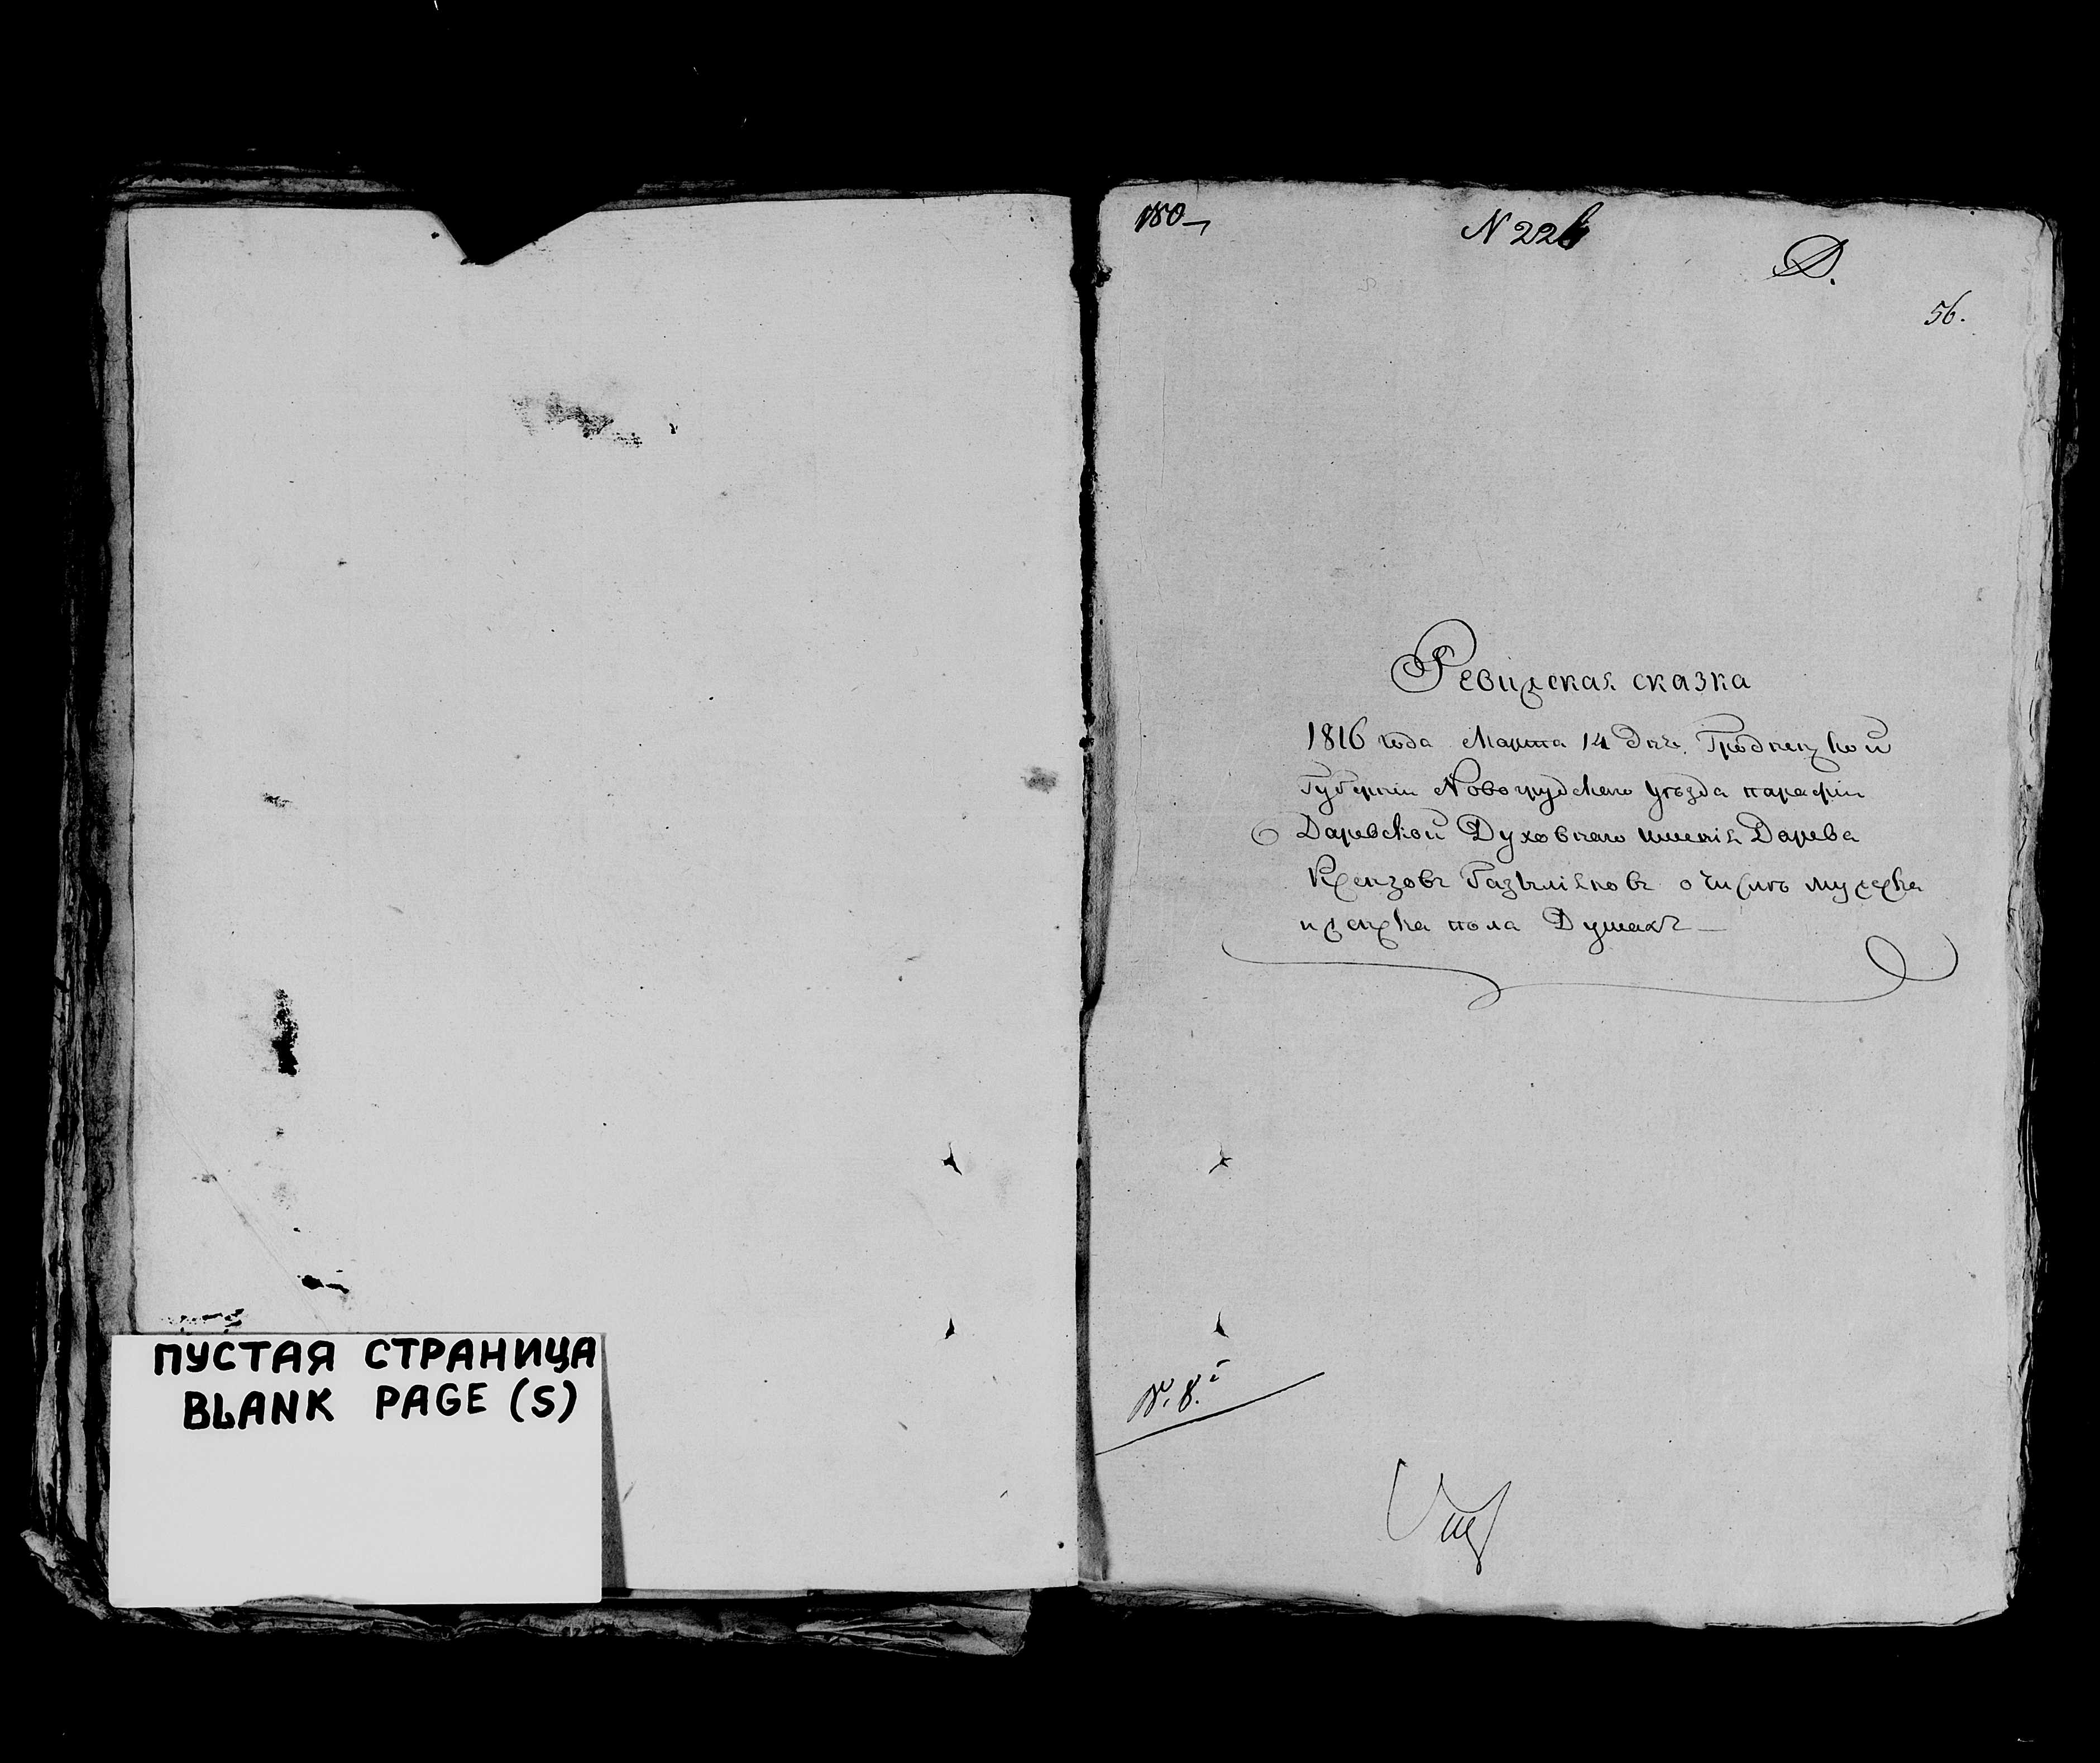 ПУСТАЯ СТРАНИЦА
BLANK PAGE (S)
180
N 226
D.
56.
Ревизская сказка
1816 года Марта 14 дня. Гродненской
Губернии Новогрудского уѣзда парафіи
Даревской Духовнаго имения Дарева
Ксензовъ Базыліановъ о числѣ мужеска
и женска пола Душахъ
N. 8.